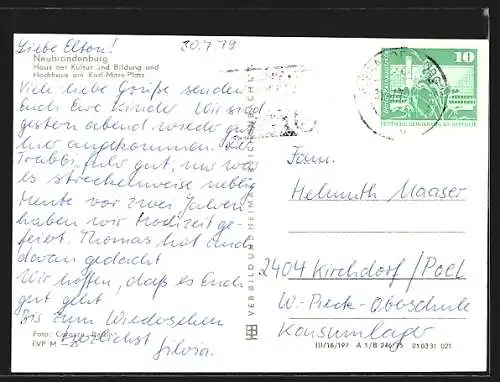 Liebe Eltern!
30.7.79
Neubrandenburg
Haus der Kultur und Bildung und
Hochhaus am Karl-Marx-Platz
Viele liebe Grüße senden
Euch Eure Kinder. Wir sind
gestern abend wieder gut
hier angekommen. Der
Trabbi fuhr gut, nur war
es streckenweise neblig
Heute vor zwei Jahren
haben wir Hochzeit ge-
feiert. Thomas hat auch
daran gedacht
Wir hoffen, daß es Euch
gut geht
Bis zum Wiedersehen
herzlichst
Silvia.
Foto: Berlin
EVP M
VERLAG BILD UND HEIMAT
10
DEUTSCHE DEMOKRATISCHE REPUBLIK
Fam.
Helmuth Maaser
2404 Kirchdorf/Poel
W-Pieck-Oberschule
Konsumlager
III/18/197 A 1/B 01 03 31 021